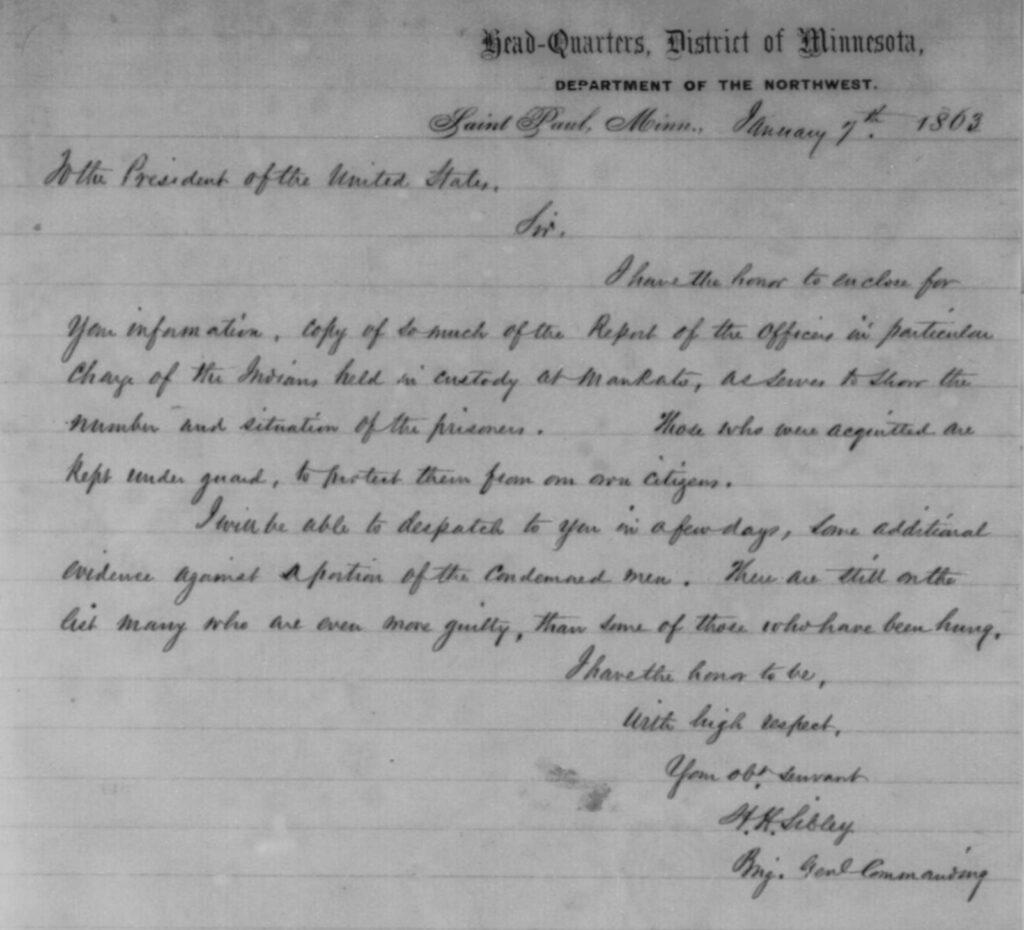 Head-Quarters, District of Minnesota,
DEPARTMENT OF THE NORTHWEST.
Saint Paul, Minn., January 7th. 1863
To the President of the United States.
Sir.
I have the honor to enclose for
Your information, copy of so much of the Report of the Officers in particular
charge of the Indians held in custody at Mankato, as serves to show the
number and situation of the prisoners. Those who were acquitted are
kept under guard, to protect them from our own citizens.
I will be able to despatch to you in a few days, some additional
evidence against a portion of the condemned men. There are still on the
list many who are even more guilty, than some of those who have been hung.
I have the honor to be,
With high respect,
Your obt. servant
H. H. Sibley
Brig. Genl Commanding